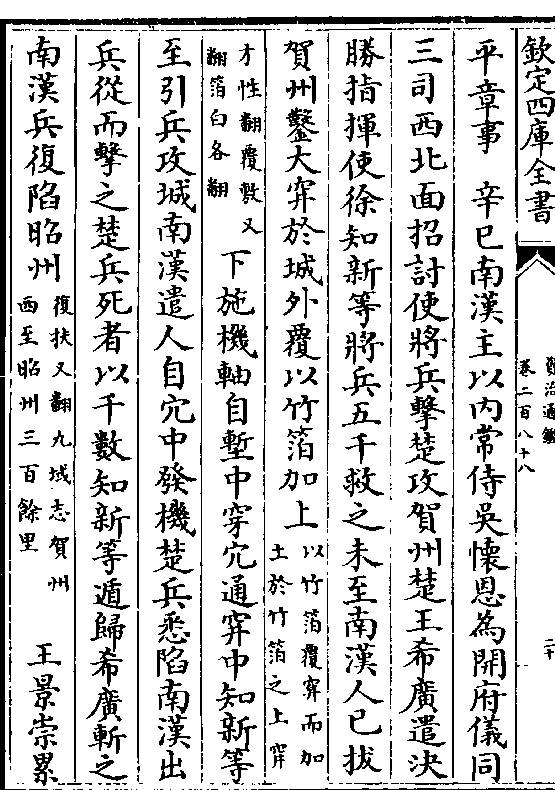 欽定四庫全書
資治通鑑
卷二百八十八
平章事　辛巳南漢主以内常侍吳懷恩為開府儀同
三司西北面招討使將兵擊楚攻賀州楚王希廣遣決
勝指揮使徐知新等將兵五千救之未至南漢人已拔
賀州鑿大穽於城外覆以竹箔加上
以竹箔覆穽而加
土於竹箔之上穽
才性翻覆敷又
翻箔白各翻
下施機軸自塹中穿穴通穽中知新等
至引兵攻城南漢遣人自穴中發機楚兵悉陷南漢出
兵從而擊之楚兵死者以千數知新等遁歸希廣斬之
南漢兵復陷昭州
復扶又翻九域志賀州
西至昭州三百餘里
王景崇累